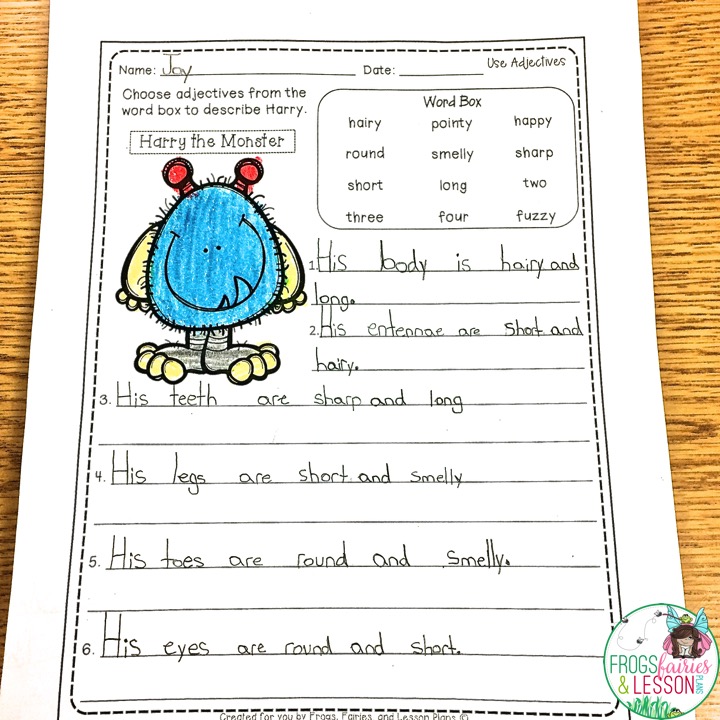 Use Adjectives
Name: Joy Date:
Choose adjectives from the
word box to describe Harry.
Harry the Monster
Word Box
hairy pointy happy
round smelly sharp
short long two
three four fuzzy
1. His body is hairy and
long.
2. His entennae are short and
hairy.
3. His teeth are sharp and long
4. His legs are short and smelly
5. His toes are round and smelly.
6. His eyes are round and short.
Created for you by Frogs, Fairies, and Lesson Plans ©
FROGS
fairies
& LESSON
PLANS